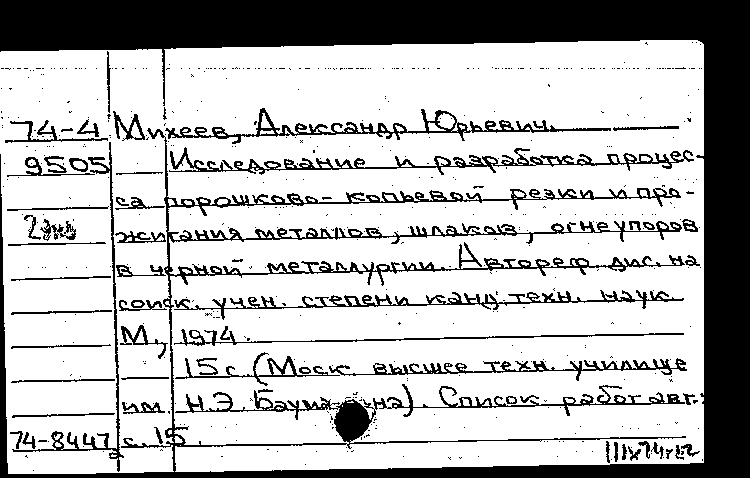 74-4 Михеев, Александр Юрьевич.
9505 Исследование и разработка процес-
са порошково-копьевой резки и про-
2 экз жигания металлов, шлаков, огнеупоров
в черной металлургии. Автореф. дис. на
соиск. учен. степени канд. техн. наук.
М., 1974.
15 с. (Моск. высшее техн. училище
им. Н.Э. Баумана). Список работ авт.:
74-8447 с. 15.